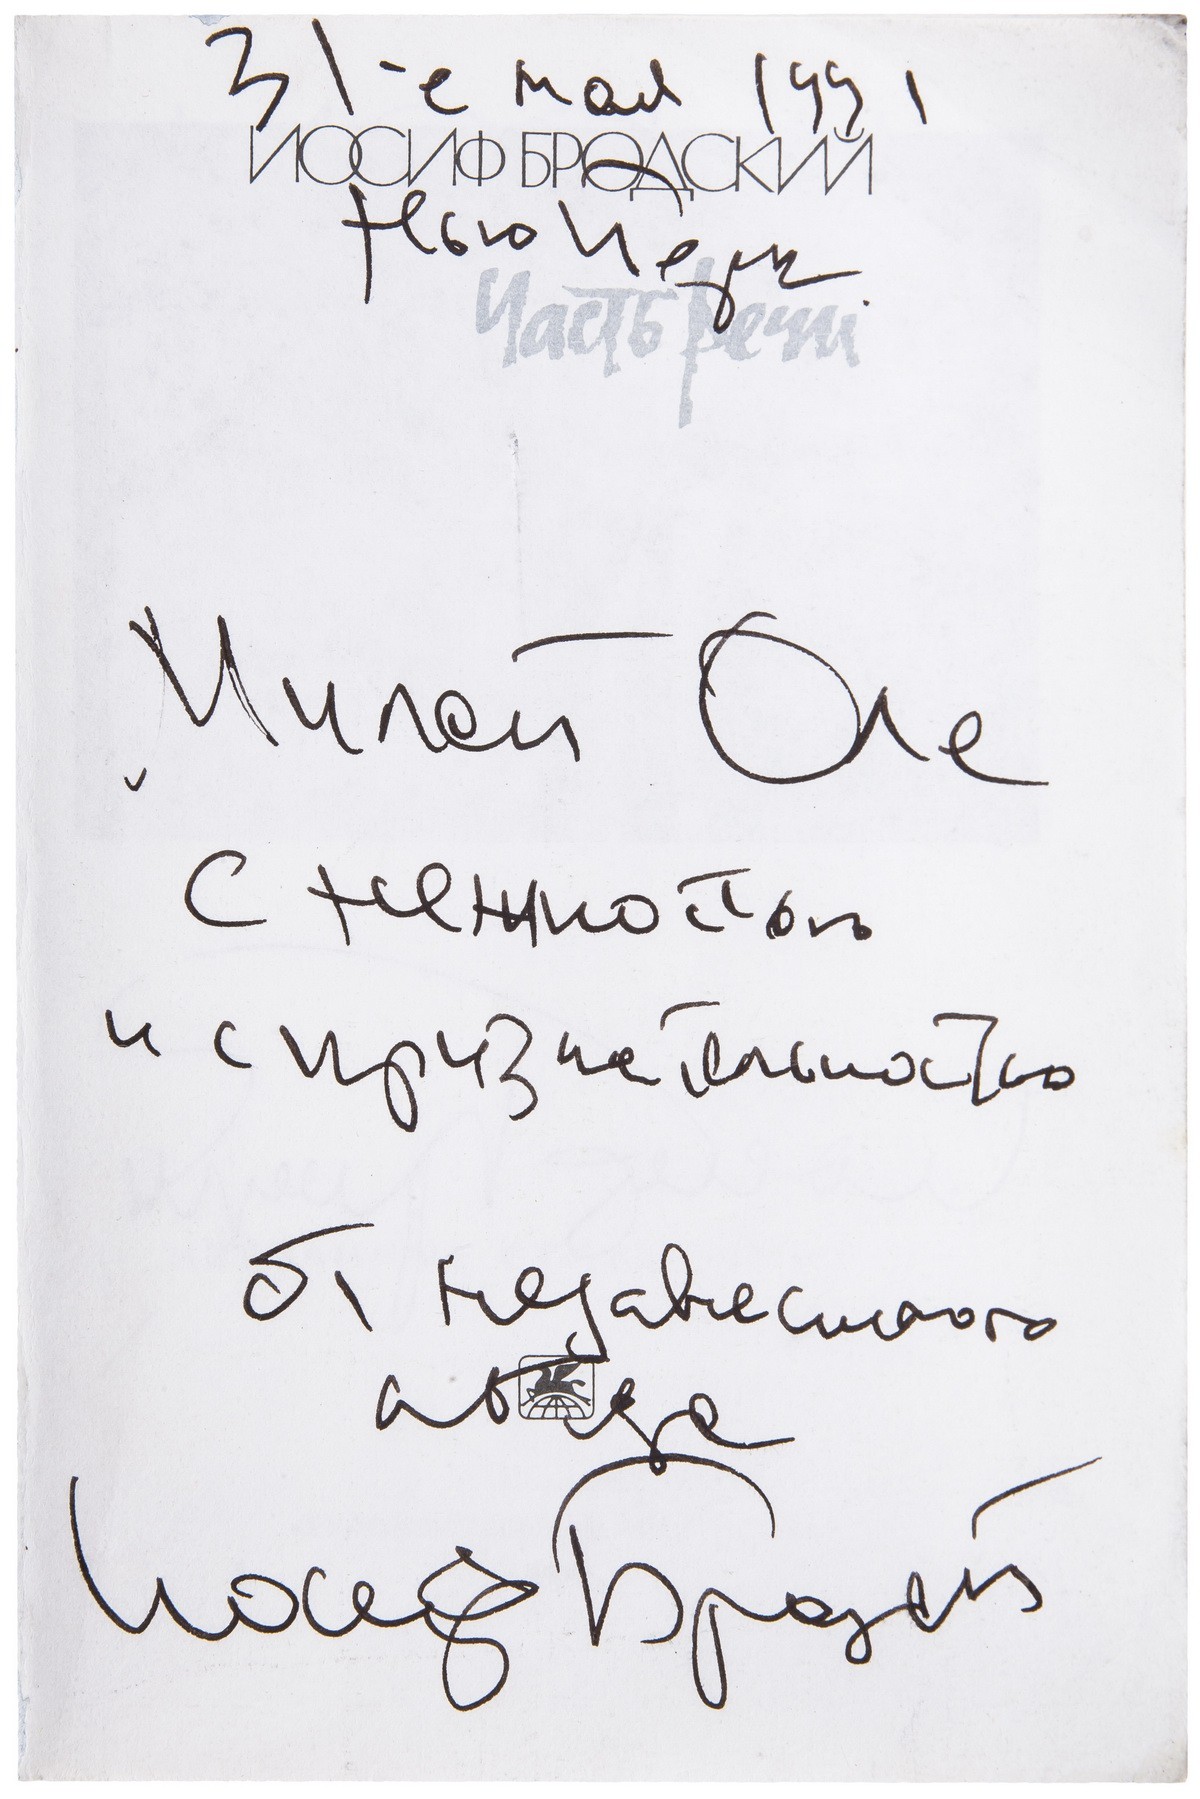 31-е мая 1991
ИОСИФ БРОДСКИЙ
Нью Йорк
Часть речи
Милой Оле
с нежностью
и с признательностью
от
Иосиф Бродский